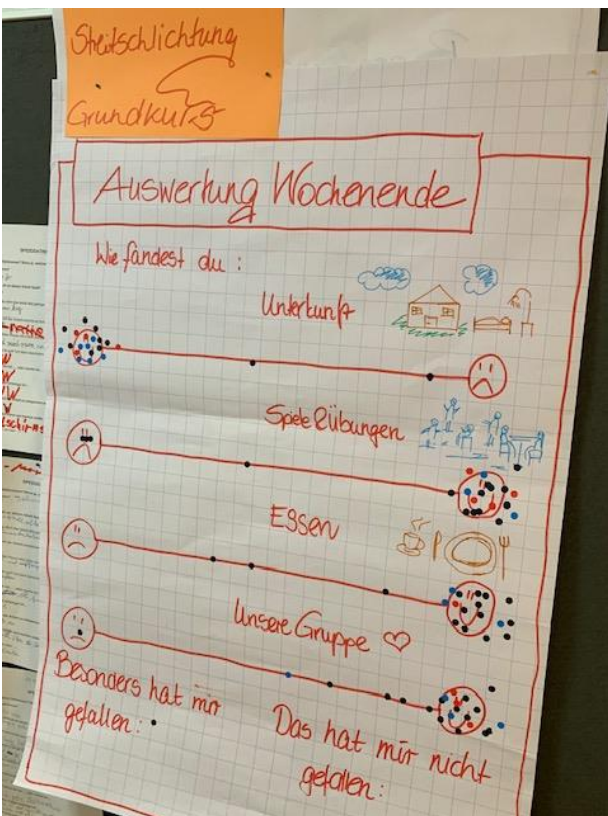 Streitschlichtung
Grundkurs
Auswertung Wochenende
Wie fandest du :
Unterkunft
Spiele & Übungen
Essen
Unsere Gruppe ♡
Besonders hat mir
gefallen:
Das hat mir nicht
gefallen: